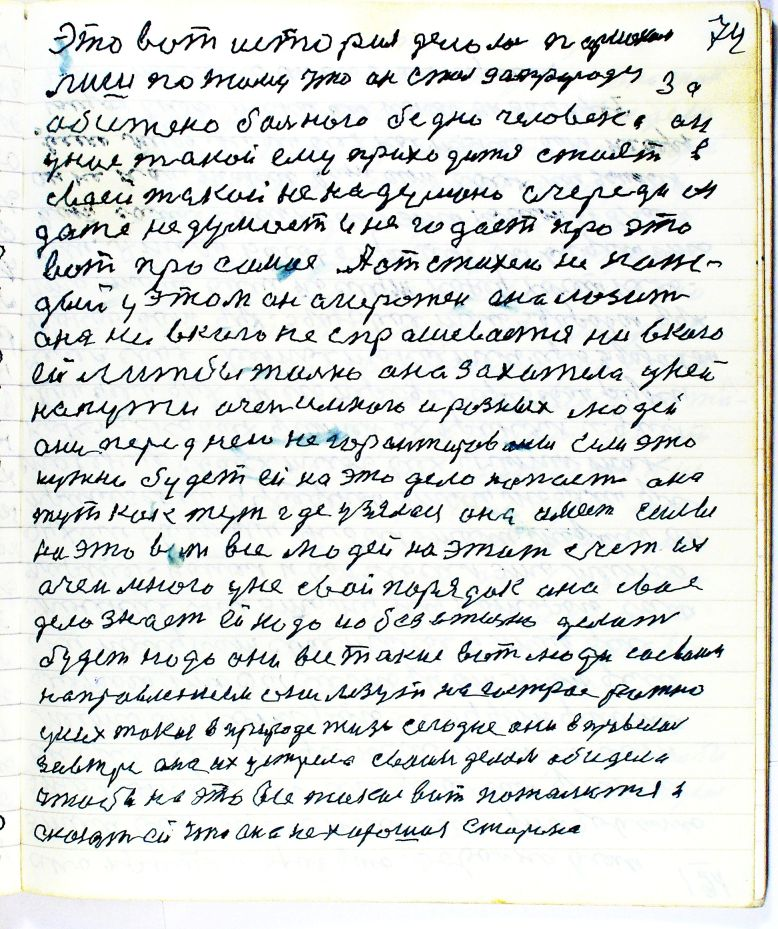 74
Это вот история делола
лиси потому что он стал за природу За
абижено больного бедно человека он
уное такой ему приходится стоят в
своей такой не надумоно очереди он
даже недумоет и не годает про это
вот про самае А от стихеи не каж-
дый у этом он а она лозит
оня ни вкого не спрашевается ни вкого
ей литьбы толко она захотела уней
напути очен много и розных людей
они перед нею негорантировани если это
нужно будет ей на это дело попаст она
тут как тут где узялас она имеет силы
на это вот все людей на этат счет их
ачен много уне свой порядок она свае
дело знает ей нодо и обезатино делат
будет нодо они все такие вот люди сосвоим
направлением они лезут на гострае
уних такая в природе жизь сегодне они
завтри она их устрела своим делом абидела
чтобы на это все такие вот пожалится и
скозат ей что она нехорошия старона